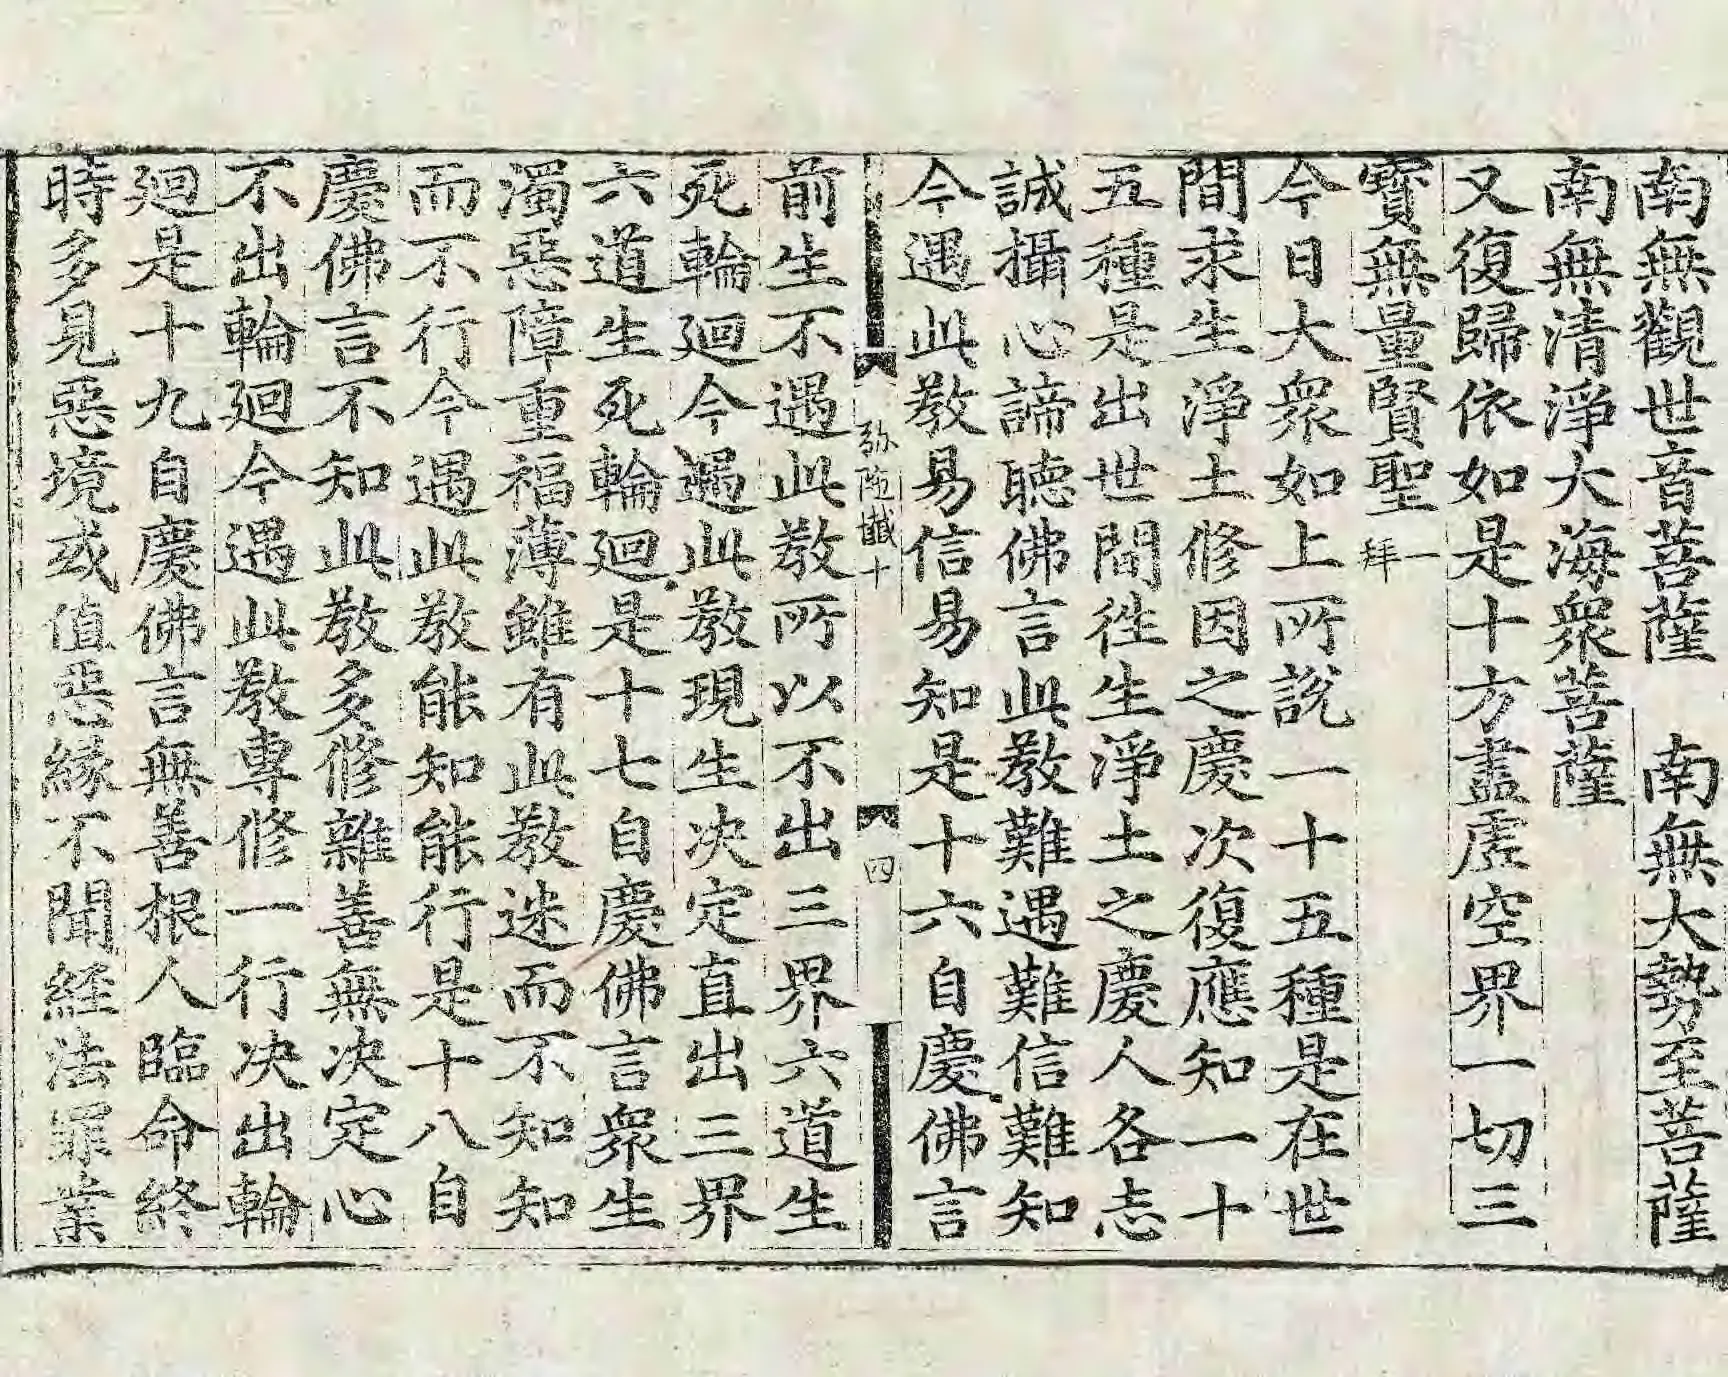 南無觀世音菩薩　南無大勢至菩薩
南無清淨大海衆菩薩
又復歸依如是十方盡虛空界一切三
寶無量賢聖 一拜
今日大衆如上所說一十五種是在世
間求生淨土修因之慶次復應知一十
五種是出世間徃生淨土之慶人各志
誠攝心諦聽佛言此教難遇難信難知
今遇此教易信易知是十六自慶佛言
弥陁懺十　四
前生不遇此教所以不出三界六道生
死輪廻今遇此教現生决定直出三界
六道生死輪廻是十七自慶佛言衆生
濁惡障重福薄雖有此教迷而不知知
而不行今遇此教能知能行是十八自
慶佛言不知此教多修雜善無决定心
不出輪廻今遇此教專修一行决出輪
廻是十九自慶佛言無善根人臨命終
時多見惡境或值惡緣不聞經法罪業